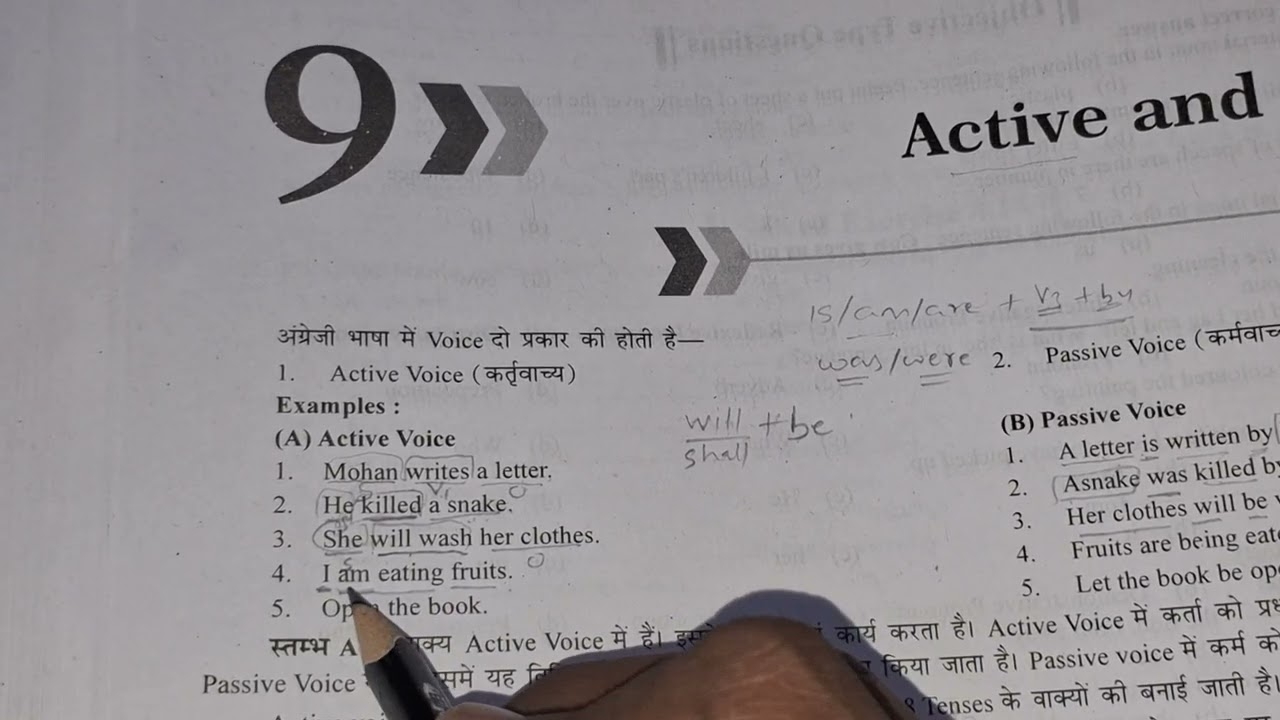 9
Active and
is/am/are + V3 + by
अंग्रेजी भाषा में Voice दो प्रकार की होती है—
was/were
1. Active Voice (कर्तृवाच्य)
2. Passive Voice (कर्मवाच्
Examples :
will + be
shall
(A) Active Voice
(B) Passive Voice
1. Mohan writes a letter.
1. A letter is written by
2. He killed a snake.
2. Asnake was killed by
3. She will wash her clothes.
3. Her clothes will be
4. I am eating fruits.
4. Fruits are being eate
5. Open the book.
5. Let the book be ope
स्तम्भ A
क्य Active Voice में हैं।
कार्य करता है। Active Voice में कर्ता को प्रध
Passive Voice
समें यह
किया जाता है। Passive voice में कर्म को
8 Tenses के वाक्यों की बनाई जाती है।